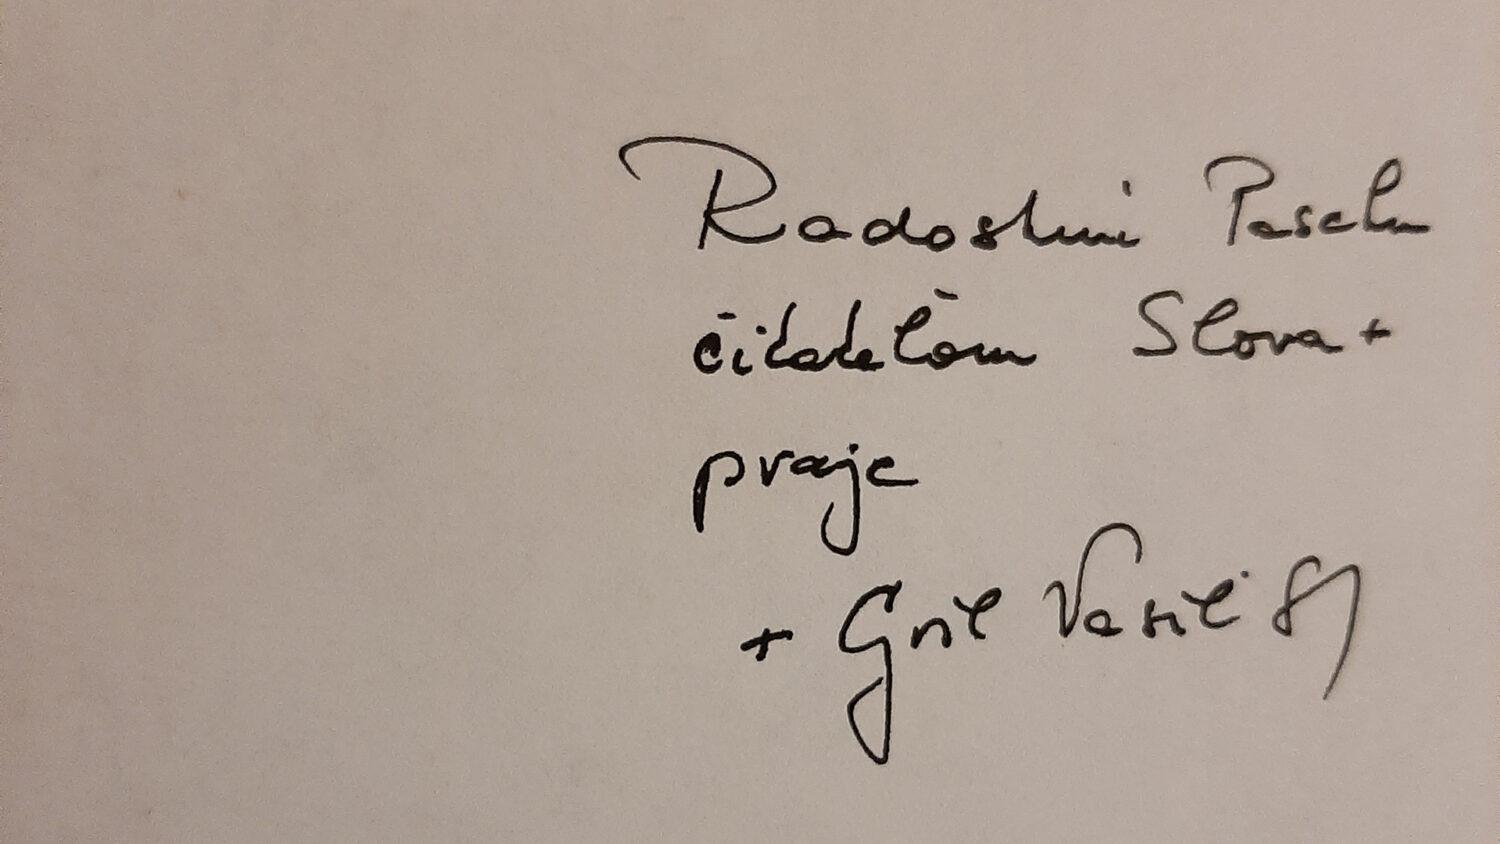 Radostnú Paschu
čitateľom Slova+
praje
+ Cyril Vasiľ SJ